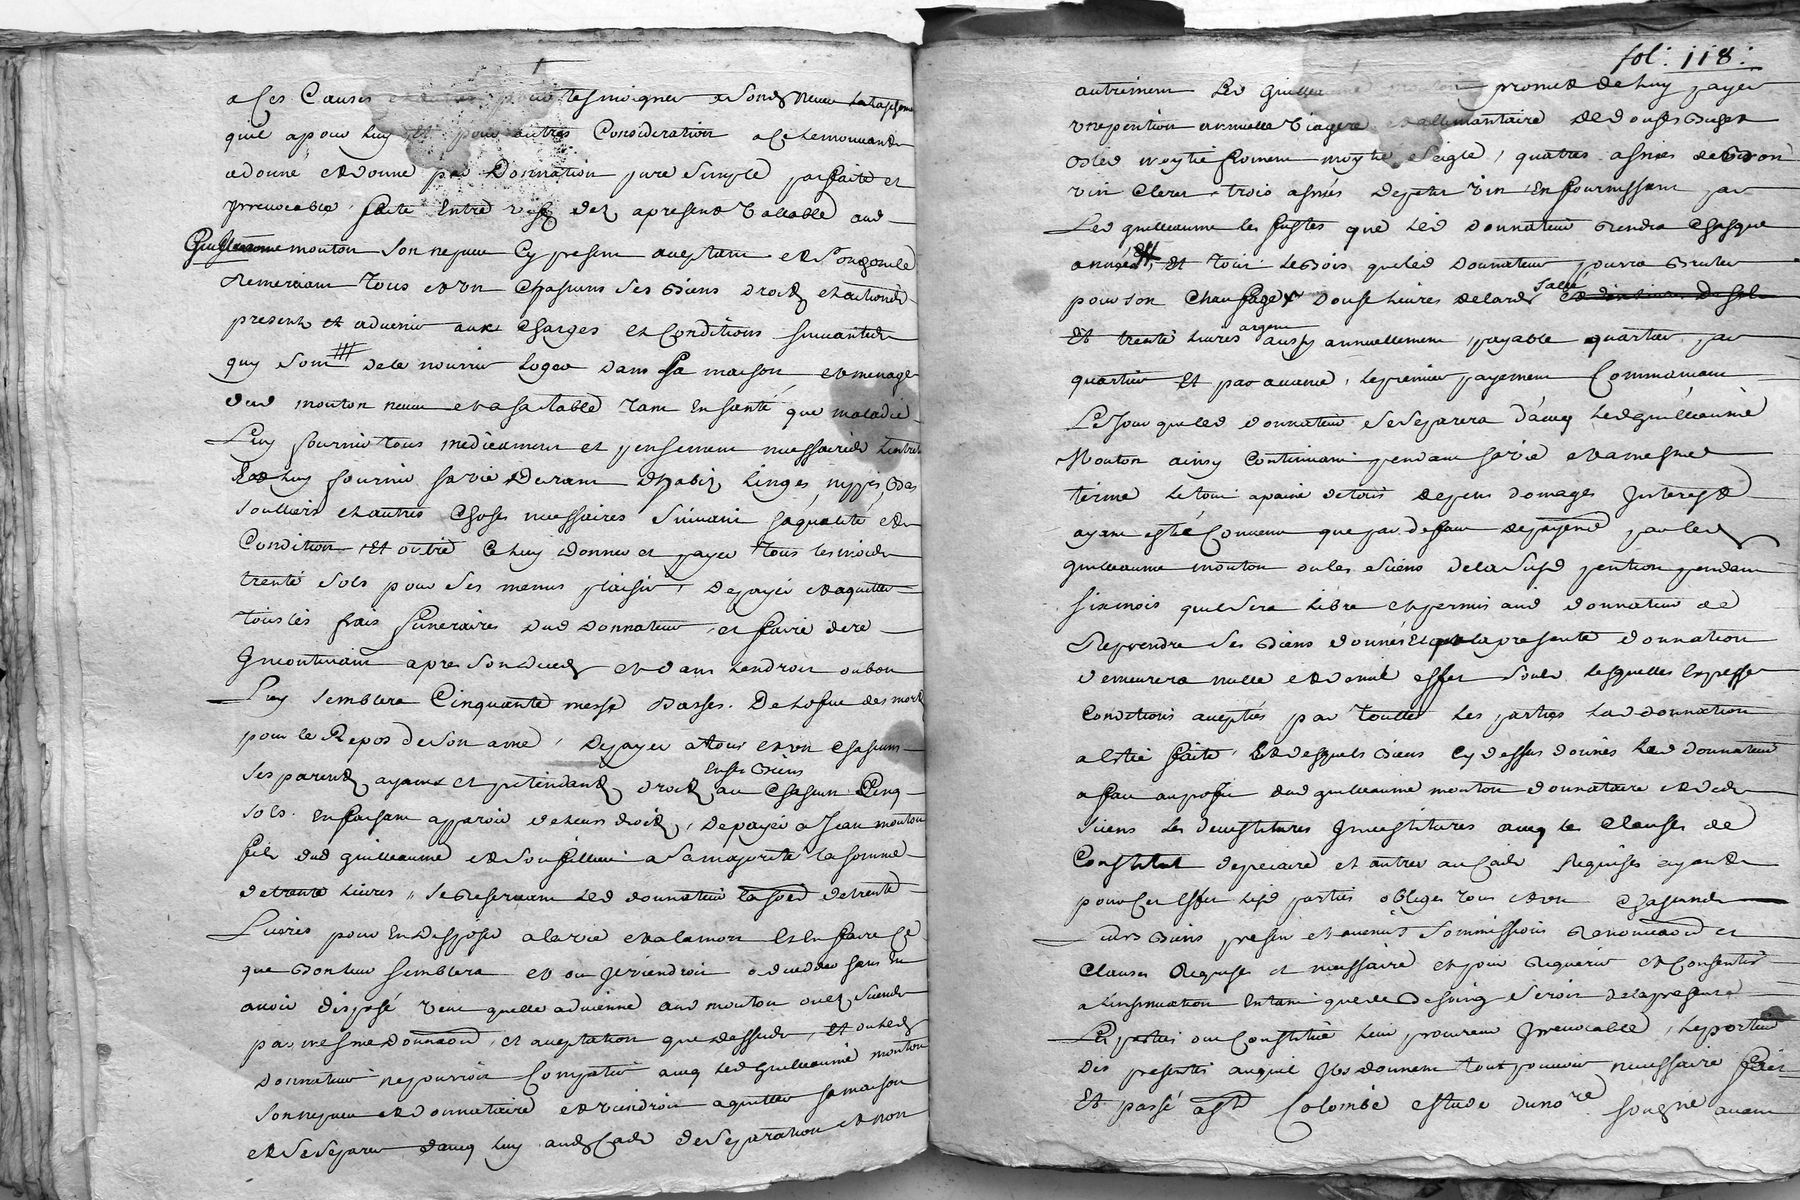 a Ces Causes et pour tesmoigner a son neveu
quil a pour luy Et pour autres Consideration a ce le mouvant
a donné et donne par Donnation pure simple parfaite et
jrrevocable faite Entre vifz apresent vallable aud
Guilleaume mouton Son nepveu Cy present aceptant et
Remerciant Tous et un Chascuns Ses Biens Droitz et actions
presents et advenir aux Charges et Conditions suivantes
quy sont de le nourrir Loger dans sa maison et menage
dud mouton neveu et a sa table Tant En santé que maladie
Luy fournir tous medicament et pensement necessaires
luy fournir sa vie Durant Dhabitz Linges, nippes, Bas
soulliers et autres Choses necessaires Suivant sa qualité et
Condition Et outre Ce Luy donner et payer Tous les mois
trente sols pour Ses menus plaisir, De payer et aquitter
tous les frais funeraires Dud Donnateur, et faire dire
Jncontinant apres Son deced et dans Lendroit ou bon
Luy semblera Cinquante messe Basses De Loffice des mort
pour le Repos de Son ame, De payer a Tous et un chascuns
ses parentz ayant et pretendantz droitz Ensesbiens au Chascun Cinq
sols. En faisant apparoir de Leurs droitz, De payer a Jean mouton
fils dud guilleaume et Son filleul a Sa majorité la somme
de trante Livres, Se Reservant Led donnateur la so&#772;e&#772; de trente
Livres pour En Disposer a la vie et a la mort Et En faire Ce
que Bon luy semblera et ou jl viendroit a deceder sans En
avoir disposé veut quelle advienne aud mouton
par mesme Donna&#772;on&#772;, et aceptation que dessus, Et ou Led
Donnateur ne pourroit Compatir avec Led Guilleaume mouton
son nepveu et donnataire et viendroit a quitter sa maison
et Se Separer d'avec Luy aud Cas de Separation et non
fol: 118:
autrement Led guilleaume mouton promet de Luy payer
une pention annuelle viagere et allimantaire De douse
Bled moytié froment moytié Seigle, quatres asnés de Bon
vin Cleret trois asnés De petit vin En fournissant par
Led guilleaume les fustes que Led Donnateur Rendra Chasque
année, Et Tout Le Bois que Led Donnateur pourra Bruler
pour son Chauffage, Douse Livres de lard salle
Et trente Livres argent aussy annuellement payable quartier par
quartier Et par avance, Le premier payement Commencant
Le Jour que Led donnateur Se Separera D'avec Led guilleaume
Mouton ainsy Continuant pendant sa vie et a mesme
terme Le tout a paine de tous depens domages Interest
ayant esté Convenu que par deffaut de payement par led
guilleaume mouton ou les Siens de la Susd pention pendant
six mois quil sera Libre et permis aud donnateur de
Reprendre Ses Biens donnés Et que la presente donnation
demeurera nulle et de nul effet Soubs Lesquelles Expresse
Conditions aceptés par Touttes Les parties Lad donnation
a Esté faite, Et desquels Biens Cy dessus donnés Led donnateur
a fait au profit dud guilleaume mouton donnataire et des
siens Les Devestitures Jnvestitures avec les Clauses de
Constitut de precaire et autres au Cas Requises ayant
pour Cet Effet Lesd parties obliges Tous et un Chascunes
Leurs Biens present et avenir Sommissions Renoncia&#772;on&#772; et
Clauses Requises et necessaire et pour Requerir et Consentir
a Linsinuation En tant que de Besoing Seroit de la presente
Les parties ont Constitué Leur procureur Jrrevocable, Le porteur
Des presentes auquel Jls donnent tout pouvoir necessaire
Et passé a St Colombe estude du nore Sousgné avant